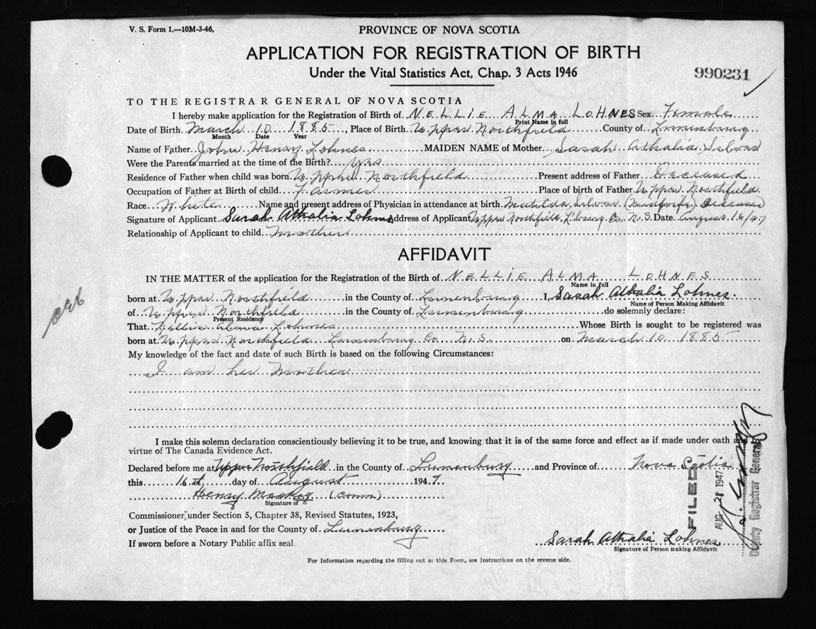 V. S. Form 1.—10M-3-46,
PROVINCE OF NOVA SCOTIA
APPLICATION FOR REGISTRATION OF BIRTH
Under the Vital Statistics Act, Chap. 3 Acts 1946
990231
TO THE REGISTRAR GENERAL OF NOVA SCOTIA
I hereby make application for the Registration of Birth of NELLIE ALMA LOHNES Sex Female
Print Name in full
Date of Birth March 10 1885, Place of Birth Upper Northfield County of Lunenburg
Month Date Year
Name of Father John Henry Lohnes MAIDEN NAME of Mother Sarah Athalia
Were the Parents married at the time of the Birth? Yes
Residence of Father when child was born Upper Northfield Present address of Father Deceased
Occupation of Father at Birth of child Farmer Place of Birth of Father Upper Northfield
Race White Name and present address of Physician in attendance at birth Matilda (Midwife) Deceased
Signature of Applicant Sarah Athalia Lohnes Address of Applicant Upper Northfield, L'burg Co. N.S. Date August 16/47
Relationship of Applicant to child Mother
AFFIDAVIT
IN THE MATTER of the application for the Registration of the Birth of NELLIE ALMA LOHNES
Name in full
born at Upper Northfield in the County of Lunenburg I, Sarah Athalia Lohnes
Name of Person Making Affidavit
of Upper Northfield in the County of Lunenburg do solemnly declare:
Present Residence
That Nellie Alma Lohnes Whose Birth is sought to be registered was
born at Upper Northfield Lunenburg Co. N.S. on March 10 1885
My knowledge of the fact and date of such Birth is based on the following Circumstances:
I am her Mother
I make this solemn declaration conscientiously believing it to be true, and knowing that it is of the same force and effect as if made under oath and by
virtue of The Canada Evidence Act.
Declared before me at Upper Northfield in the County of Lunenburg and Province of Nova Scotia
this 16th day of August 1947
Henry (Comm)
Signature of
Commissioner under Section 5, Chapter 38, Revised Statutes, 1923,
or Justice of the Peace in and for the County of Lunenburg
If sworn before a Notary Public affix seal
Sarah Athalia Lohnes
Signature of Person making Affidavit
FILED
AUG 21 1947
Deputy Registrar General
For Information regarding the filling out of this Form, see Instructions on the reverse side.